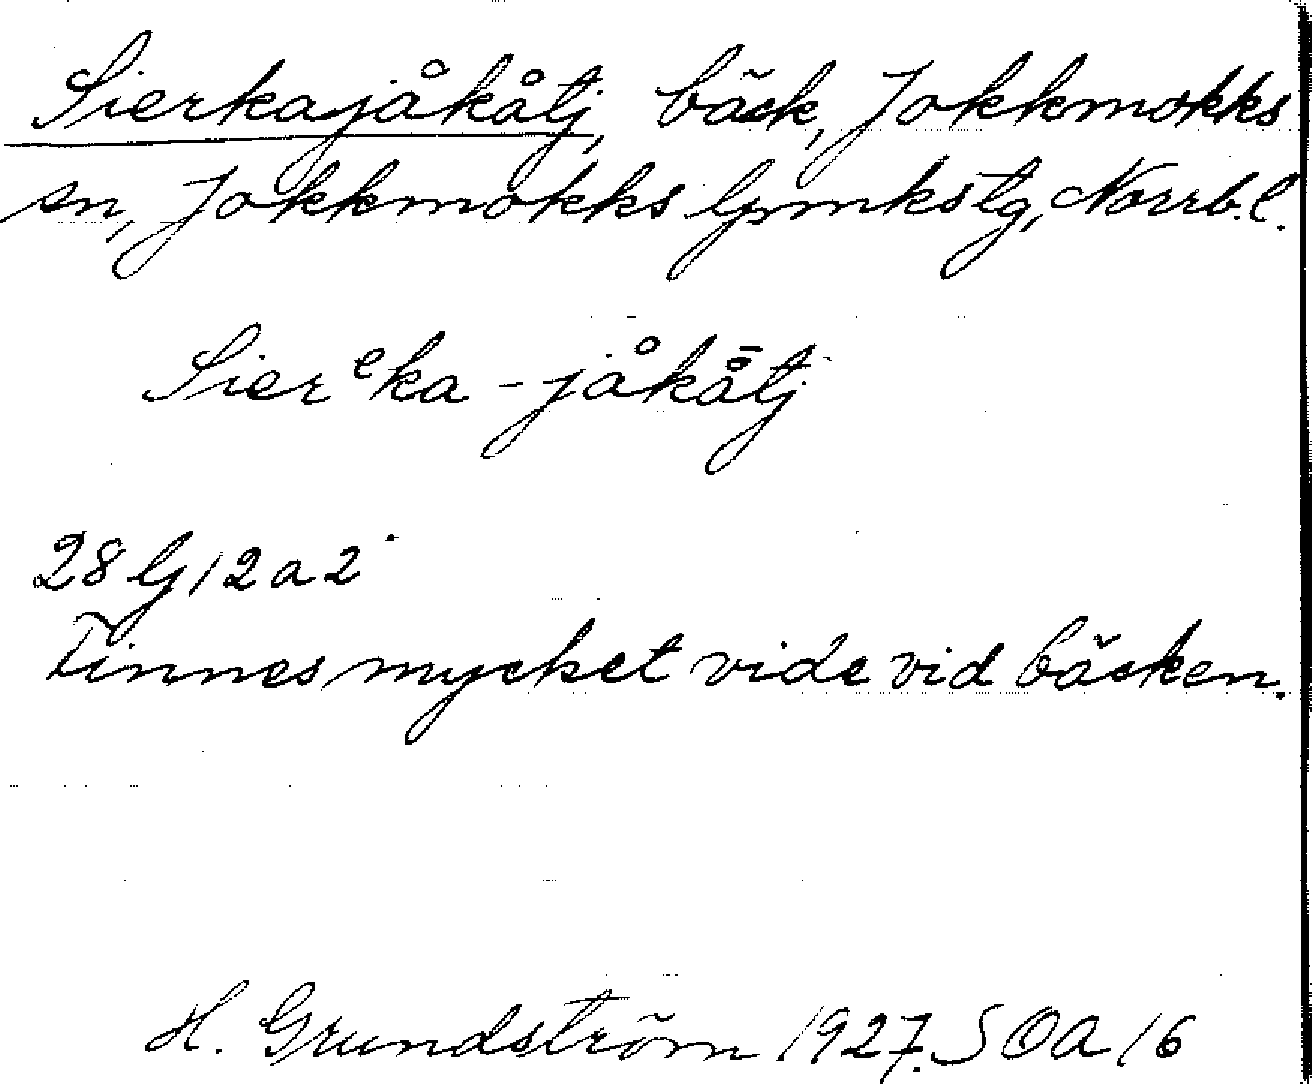 Sierkajåkåtj, bäck, Jokkmokks
sn, Jokkmokks lpmkstg, Norrb. l.
Sierᵉka-jåkå̄tj
28 G/2a2
Finnes mycket vide vid bäcken.
H. Grundström 1927. SOA 16